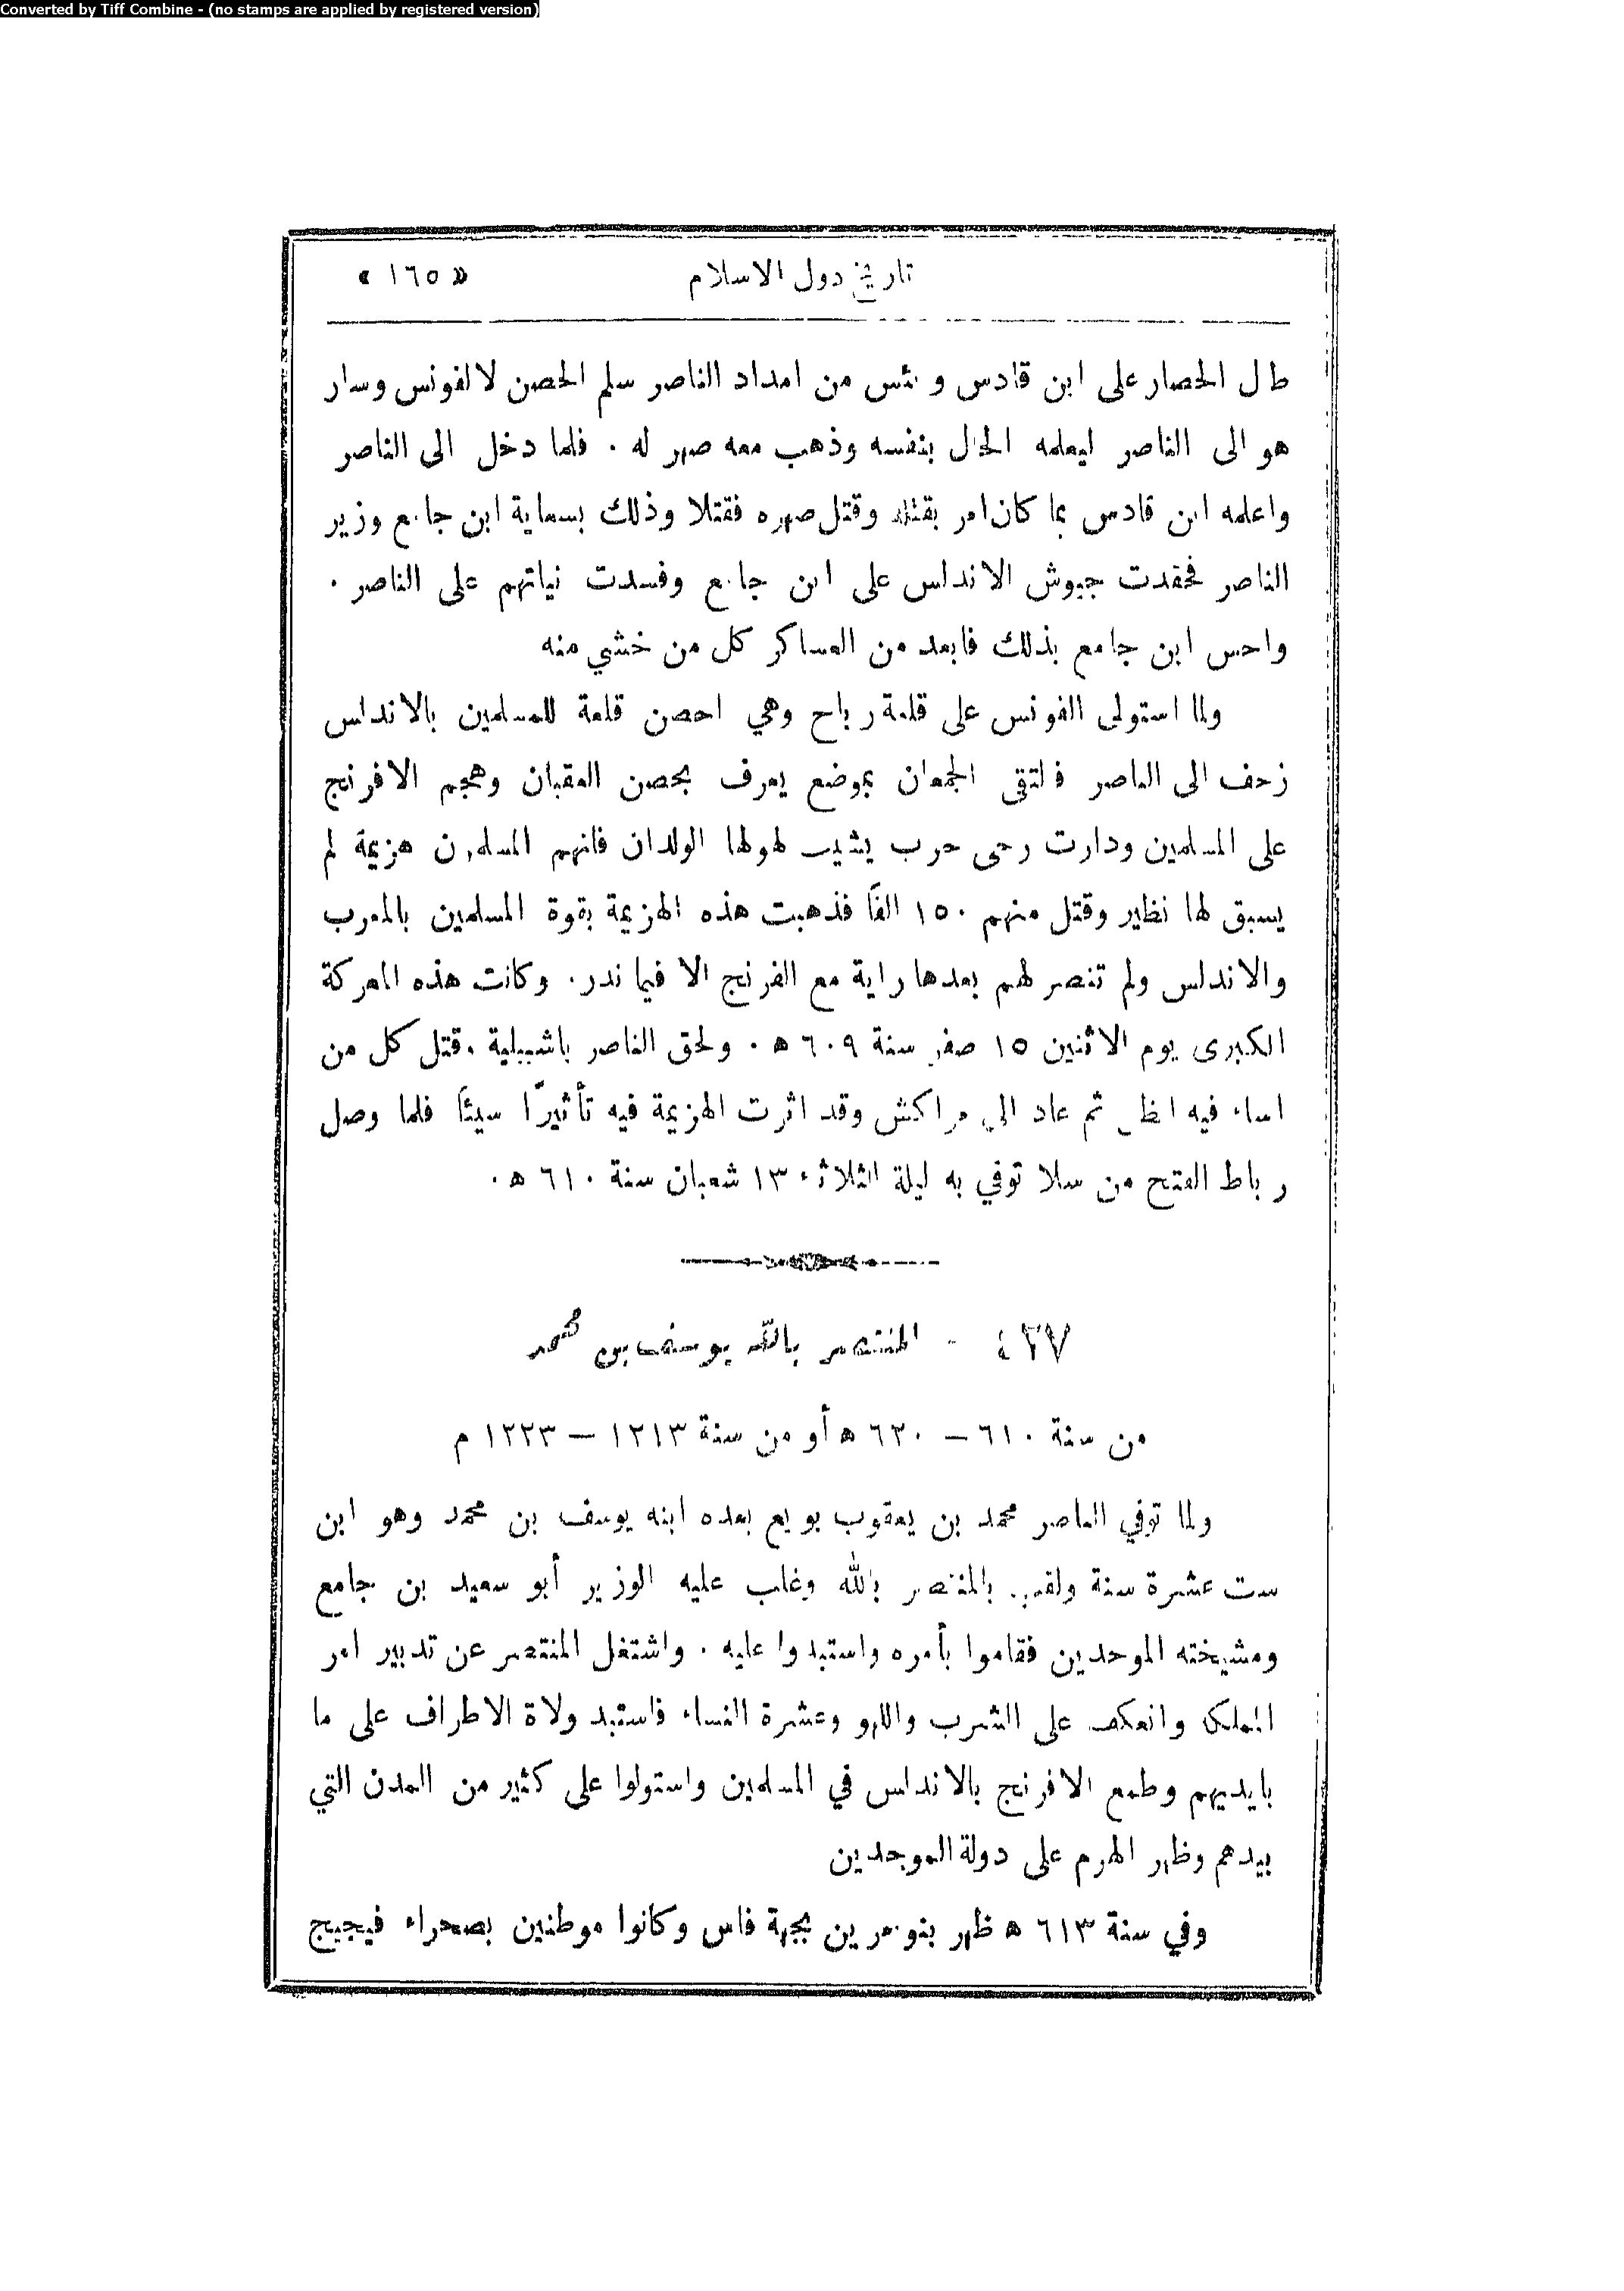 Converted by Tiff Combine - (no stamps are applied by registered version)
تاريخ دول الاسلام « ١٦٥ »
طال الحصار على ابن قادس ويئس من امداد الناصر سلم الحصن لالفونس وسار
هو الى الناصر ليعلمه الحال بنفسه وذهب معه صهر له . فلما دخل الى الناصر
واعلمه ابن قادس بما كان امر بقتله وقتل صهره فقتلا وذلك بسعاية ابن جامع وزير
الناصر فحقدت جيوش الاندلس على ابن جامع وفسدت نياتهم على الناصر .
واحس ابن جامع بذلك فابعد من العساكر كل من خشي منه
ولما استولى الفونس على قلعة رباح وهي احصن قلعة للمسلمين بالاندلس
زحف الى الناصر فالتقى الجمعان بموضع يعرف بحصن العقبان وهجم الافرنج
على المسلمين ودارت رحى حرب يشيب لهولها الولدان فانهزم المسلمون هزيمة لم
يسبق لها نظير وقتل منهم ١٥٠ الفًا فذهبت هذه الهزيمة بقوة المسلمين بالمغرب
والاندلس ولم تنصر لهم بعدها راية مع الفرنج الا فيما ندر . وكانت هذه المعركة
الكبرى يوم الاثنين ١٥ صفر سنة ٦٠٩ ه . ولحق الناصر باشبيلية وقتل كل من
اساء فيه الظن ثم عاد الى مراكش وقد اثرت الهزيمة فيه تأثيرًا سيئًا فلما وصل
رباط الفتح من سلا توفي به ليلة الثلاثاء ١٣ شعبان سنة ٦١٠ ه .
٤٢٧ - المنتصر بالله يوسف بن محمد
من سنة ٦١٠ – ٦٢٠ ه أو من سنة ١٢١٣ – ١٢٢٣ م
ولما توفي الناصر محمد بن يعقوب بويع بعده ابنه يوسف بن محمد وهو ابن
ست عشرة سنة ولقب بالمنتصر بالله وغلب عليه الوزير أبو سعيد بن جامع
ومشيخته الموحدين فقاموا بأمره واستبدوا عليه . واشتغل المنتصر عن تدبير امر
المملكة وانعكف على الشرب واللهو وعشرة النساء فاستبد ولاة الاطراف على ما
بايديهم وطمع الافرنج بالاندلس في المسلمين واستولوا على كثير من المدن التي
بيدهم وظهر الهرم على دولة الموحدين
وفي سنة ٦١٣ ه ظهر بنو مرين بجهة فاس وكانوا موطنين بصحراء فيجيج